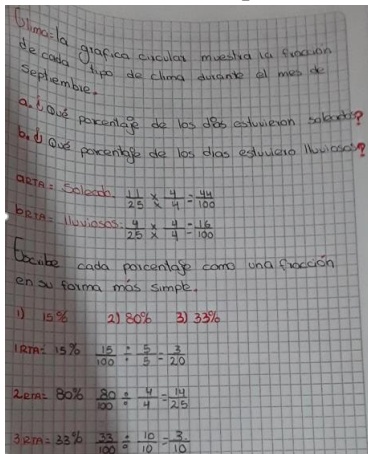 Clima: la grafica circular muestra la función
de cada tipo de clima durante el mes de
Septiembre.
a. ¿Qué porcentaje de los días estuvieron soleados?
b. ¿Qué porcentaje de los dias estuviero lluviosos?
aRTA = Soleado. 11/25 × 4/4 = 44/100
bRTA = lluviosos: 4/25 × 4/4 = 16/100
Escribe cada porcentaje como una fracción
en su forma más simple.
1) 15% 2) 80% 3) 33%
1RTA: 15% 15/100 ÷ 5/5 = 3/20
2RTA: 80% 80/100 ÷ 4/4 = 14/25
3RTA: 33% 33/100 ÷ 10/10 = 3/10